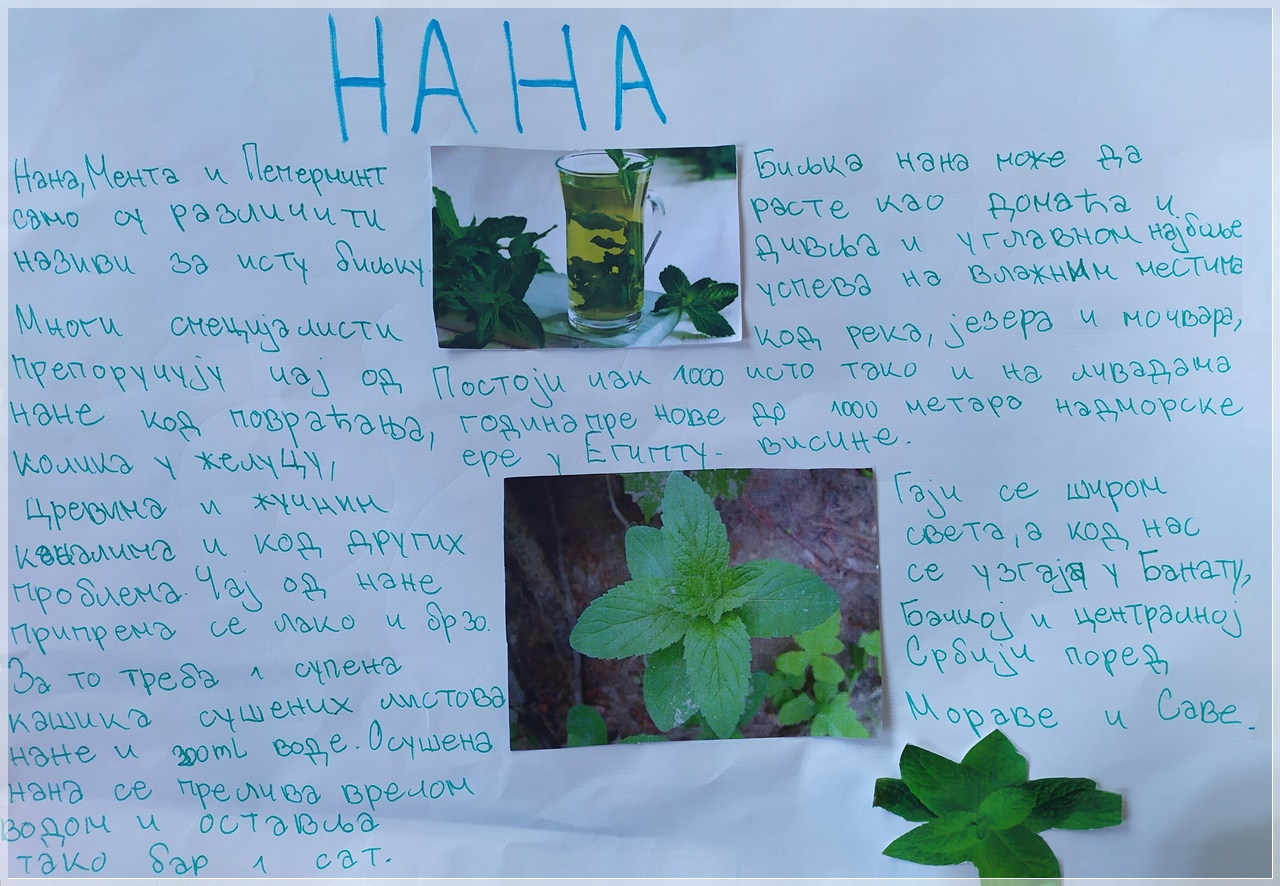 НАНА
Нана, Мента и Пеперминт
само су различити
називи за исту биљку.
Многи специјалисти
препоручују чај од
нане код повраћања,
колика у желуцу,
цревима и жучним
каналима и код других
проблема. Чај од нане
припрема се лако и брзо.
За то треба 1 супена
кашика сушених листова
нане и 200ml воде. Осушена
нана се прелива врелом
водом и оставља
тако бар 1 сат.
Постоји чак 1000
година пре нове
ере у Египту.
Биљка нана може да
расте као домаћа и
дивља и углавном најбоље
успева на влажним местима
код река, језера и мочвара,
исто тако и на ливадама
до 1000 метара надморске
висине.
Гаји се широм
света, а код нас
се узгаја у Банату,
Бачкој и централној
Србији поред
Мораве и Саве.